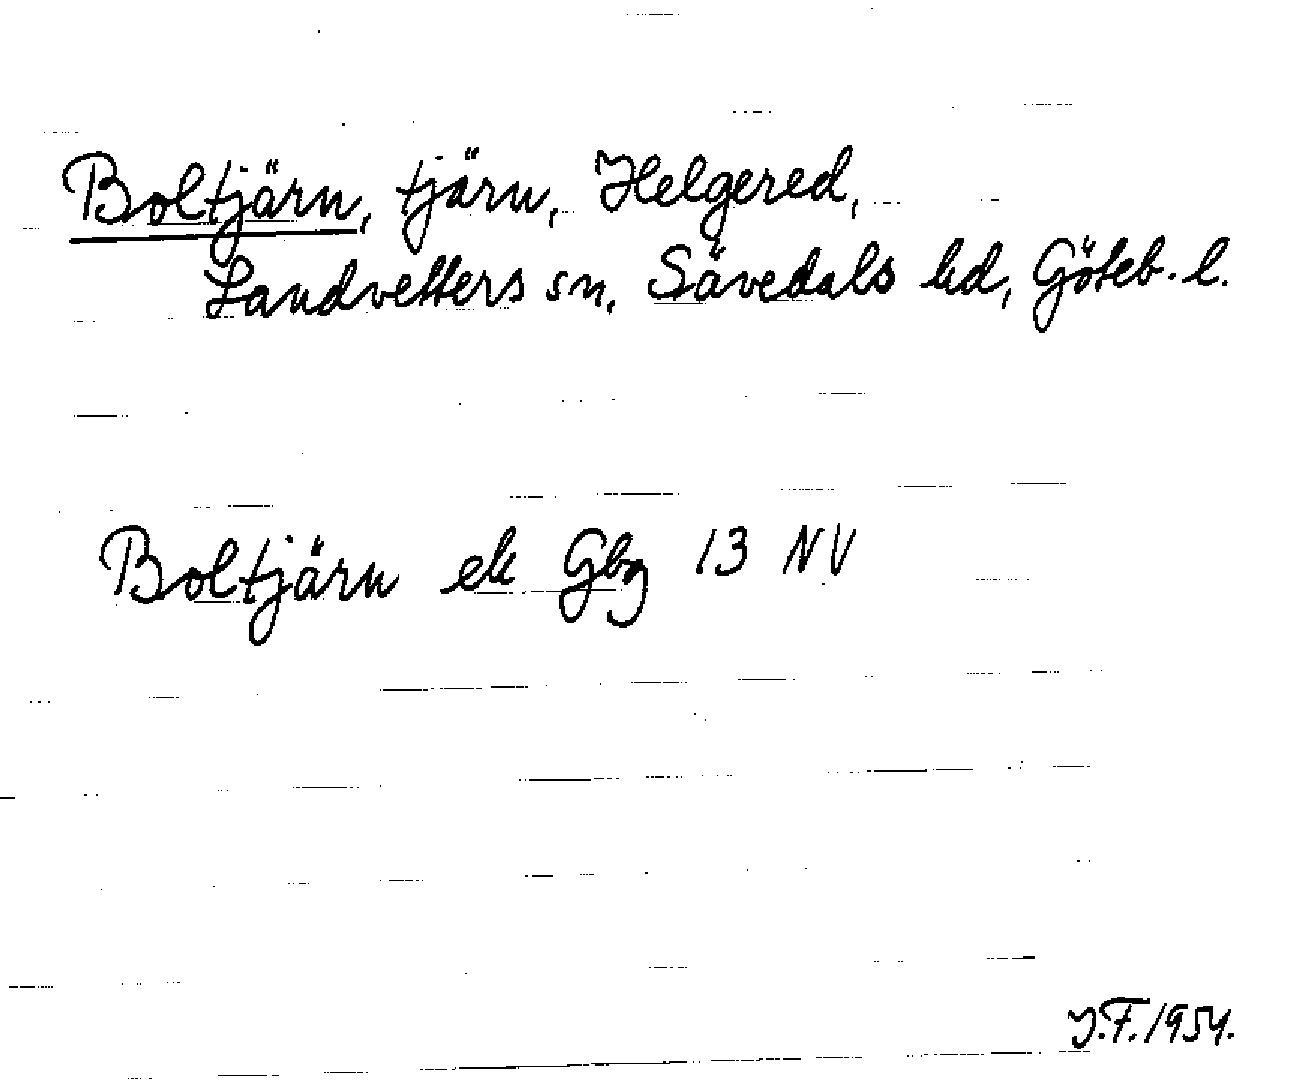 Boltjärn, tjärn, Helgered,
Landvetters sn, Sävedals hd, Göteb. l.
Boltjärn ek Gbg 13 NV
J.F. 1954.